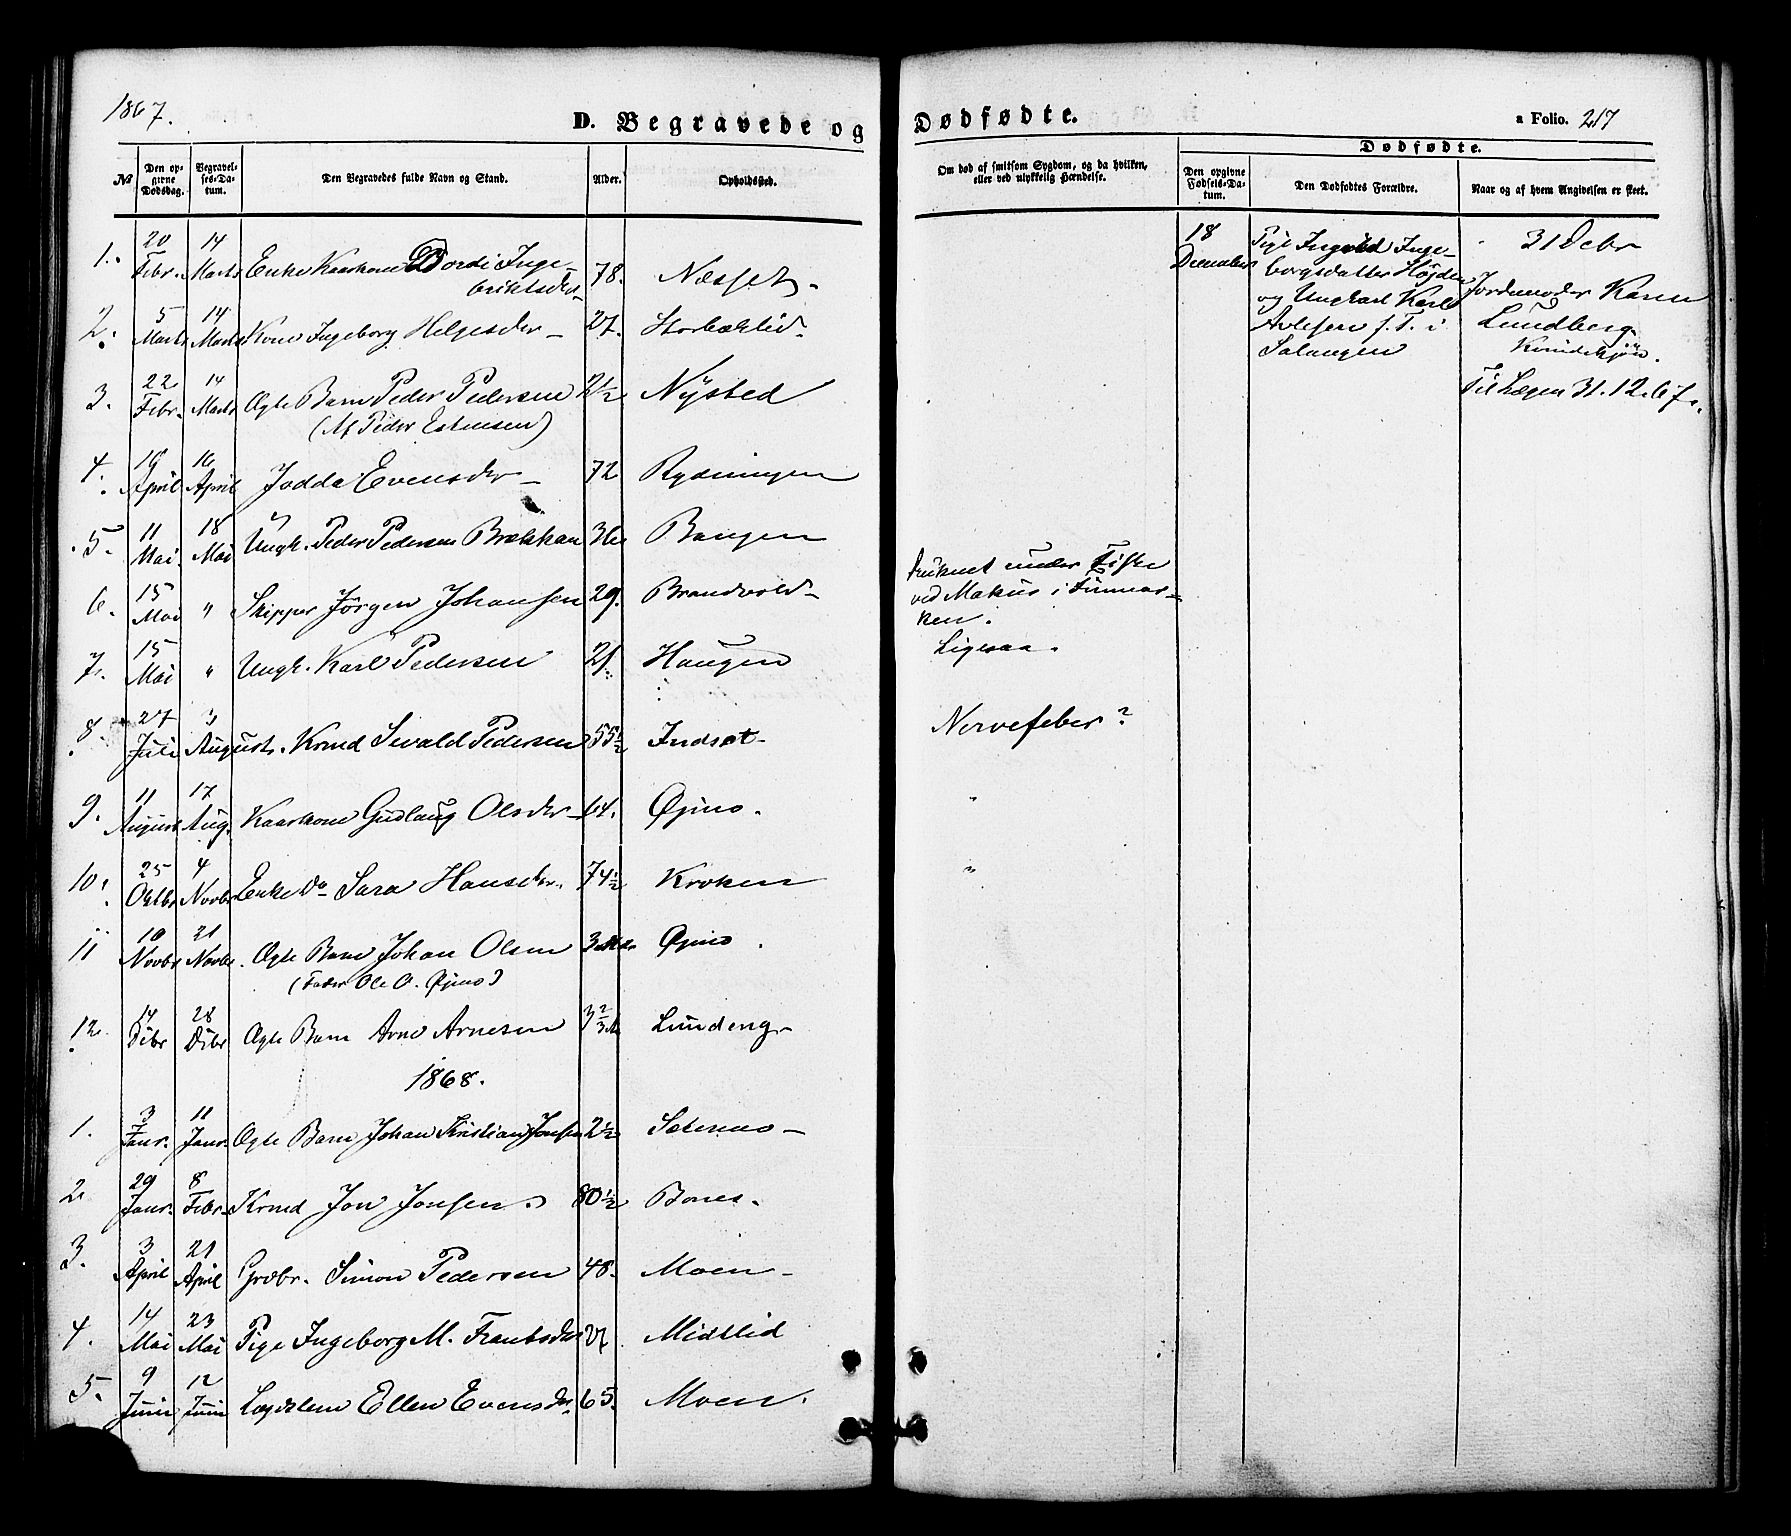 1867.
D. Begravede og
№
Den opgivne Dødsdag.
Begravelses-Datum.
Den Begravedes fulde Navn og Stand.
Alder.
Opholdssted.
1. 20 Febr. 14 Marts Enke Kaarkone Dordi Inge-
briktsdtr 78. Næsset.
2. 5 Marts 14 Marts Kone Ingeborg Helgesdtr 27. Storbæklid.
3. 22 Febr. 14 Marts Ægte Barn Peder Pedersen 2½ Nysted
(Af Peder Estensen)
4. April 16 April Jodda Evensdtr 72 Rydningen
5. 11 Mai. 18 Mai Ungk. Peder Pedersen Brækkan Bangen
6. 15 Mai " Skipper Jørgen Johansen 29. Brandvold
7. 15 Mai " Ungk. Karl Pedersen 21. Haugen
8. 27 Juli 3 August. Krmd Sivald Pedersen 55½ Indset
9. 11 August 17 Aug. Kaarkone Gudlaug Olsdtr Øjmo.
10. 25 Oktbr 4 Novbr Enke Sara Hansdtr. 74½ Kroken
11 10 Novbr 21 Novbr. Ægte Barn Johan Olsen 3 Øjmo.
(Fader Ole O. Øjmo)
12. 14 Dcbr 28 Dcbr Ægte Barn Arne Arnesen 3⅔ Lundeng
1868.
1. 3 Janr. 11 Janr. Ægte Barn Johan Kristian Jonsen 2½ Sætermo
2. 29 Janr. 8 Febr. Krmd Jon Jonsen 80½ Bones.
3. 3 April 21 April Grdbr. Simon Pedersen 48. Moen
4. 14 Mai 23 Mai Pige Ingeborg M. Frantsdtr Midtlid
5. 9 Juni 12 Juni Lægdslem Ellen Evensdtr 65. Moen.
Dødfødte.
a Folio. 217
Om død af smitsom Sygdom, og da hvilken,
eller ved ulykkelig Hændelse.
Dødfødte.
Den opgivne Fødsels-Datum.
Den Dødfødtes Forældre.
Naar og af hvem Angivelsen er skeet.
18
December
Pige Ingeborgsdatter Højden
og Ungkarl Karl
f. T. i
Salangen
31 Debr
Jordemoder Karen
Lundberg
Til Lægen 31.12.67.
druknet under Fiske
ved Makur i Finmar-
ken.
Ligesaa.
Nervefeber?
"
"